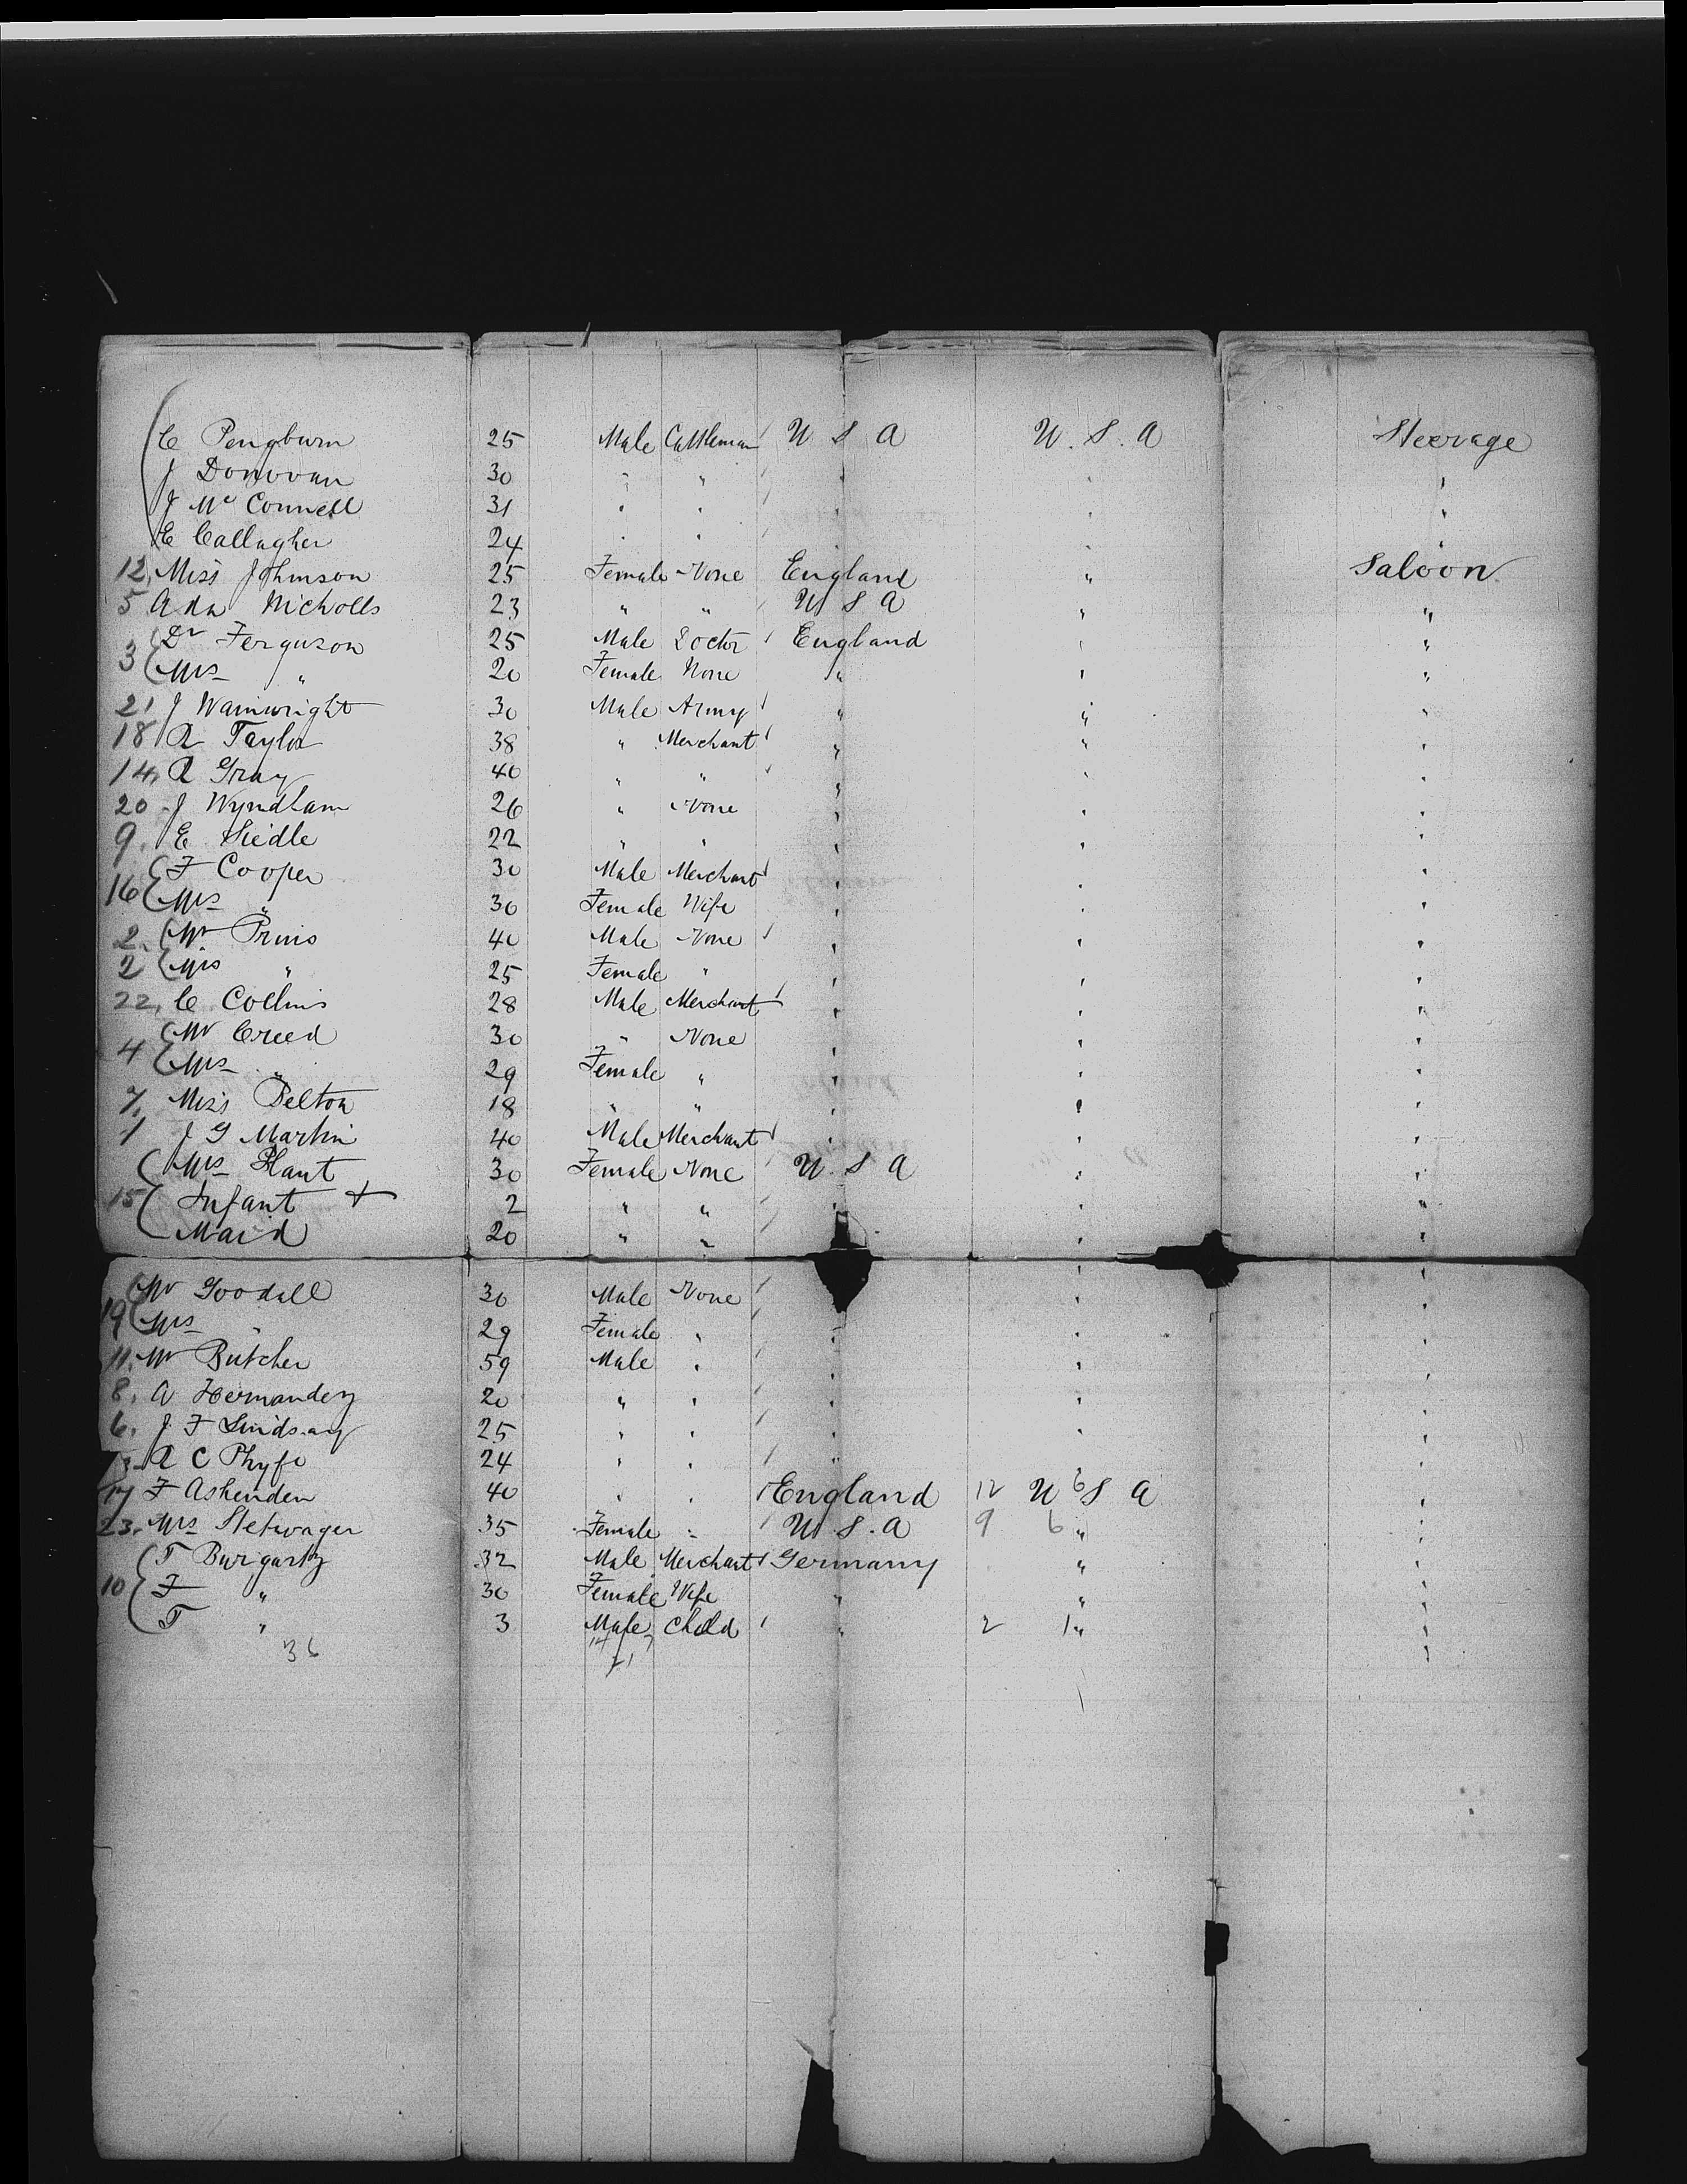 C Pengburn 25 Male Cattleman U S A U. S. A Steerage
J Donovan 30 " " " " "
J Mc Connell 31 " " " " "
E Callagher 24 " " " " "
12, Miss Johnson 25 Female None England " Saloon
5 Ada Nicholls 23 " " U S A " "
Dr Ferguson 25 Male Doctor England " "
3 Mrs " 20 Female None " " "
21 J Wainwright 30 Male Army " " "
18 R Taylor 38 " Merchant " " "
14, R Gray 40 " " " " "
20 J Wyndham 26 " None " " "
9. E Siedle 22 " " " " "
F Cooper 30 Male Merchant " " "
16 Mrs " 30 Female Wife " " "
2. Mr Prins 40 Male None " " "
2 Mrs " 25 Female " " " "
22, C Collins 28 Male Merchant " " "
Mr Creed 30 " None " " "
4 Mrs " 29 Female " " " "
7, Miss Pelton 18 " " " " "
1 J G Martin 40 Male Merchant " " "
Mrs Plant 30 Female None U. S A " "
15 Infant + 2 " " " " "
Maid 20 " " " "
Mr Goodall 30 Male None " "
19 Mrs " 29 Female " " " "
11. Mr Butcher 59 Male " " " "
8. A Hermandez 20 " " " " "
6. J F Lindsay 25 " " " " "
13. R C Phyfe 24 " " " " "
17 F Ashenden 40 " " England 12 U 6 S A "
23. Mrs Stetwager 35 Female " U. S. A 9 6 " "
T Burgartz 32 Male Merchant Germany " "
10 F " 30 Female Wife " " "
T " 3 Male Child " 2 1 " "
36 14 7
21